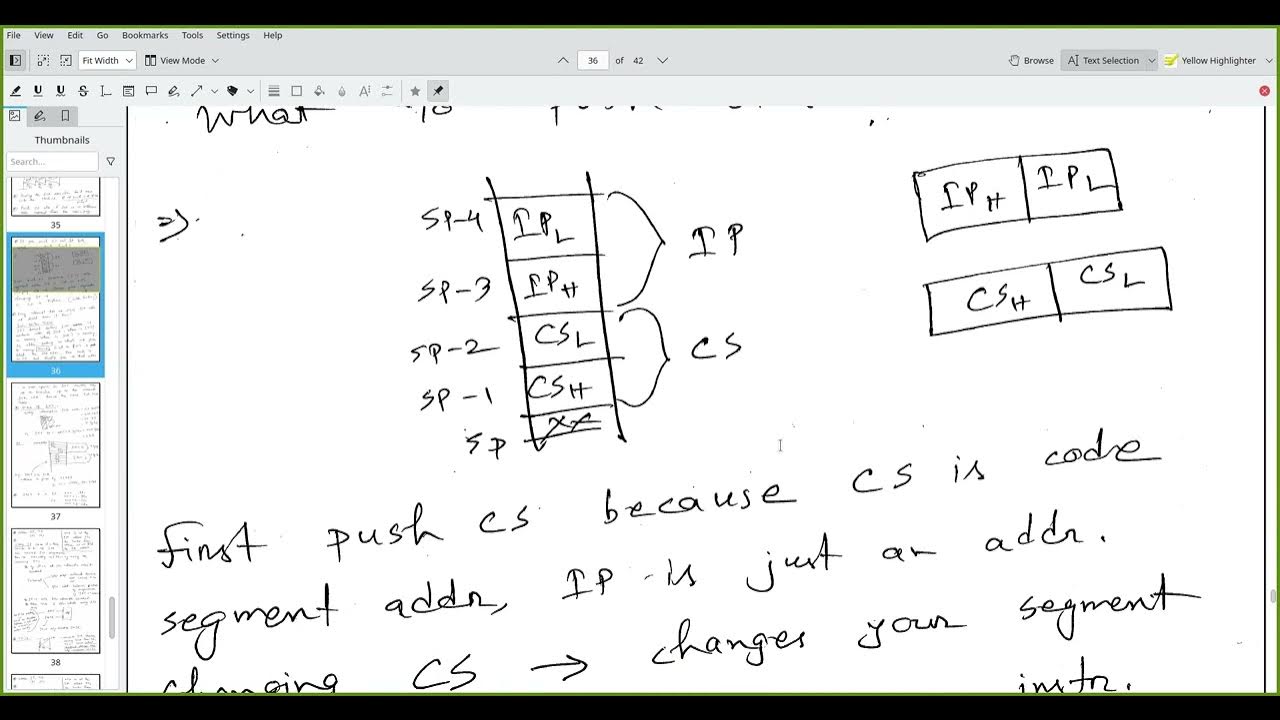 File View Edit Go Bookmarks Tools Settings Help
Fit Width View Mode 36 of 42 Browse Text Selection Yellow Highlighter
Thumbnails
Search...
35
36
37
38
What to
=>).
SP-4 IPL
SP-3 IPH
IP
SP-2 CSL
SP-1 CSH
CS
SP XX
IPH IPL
CSH CSL
first push CS because CS is code
segment addr, IP is just an addr.
changing CS → changes your segment
instr.